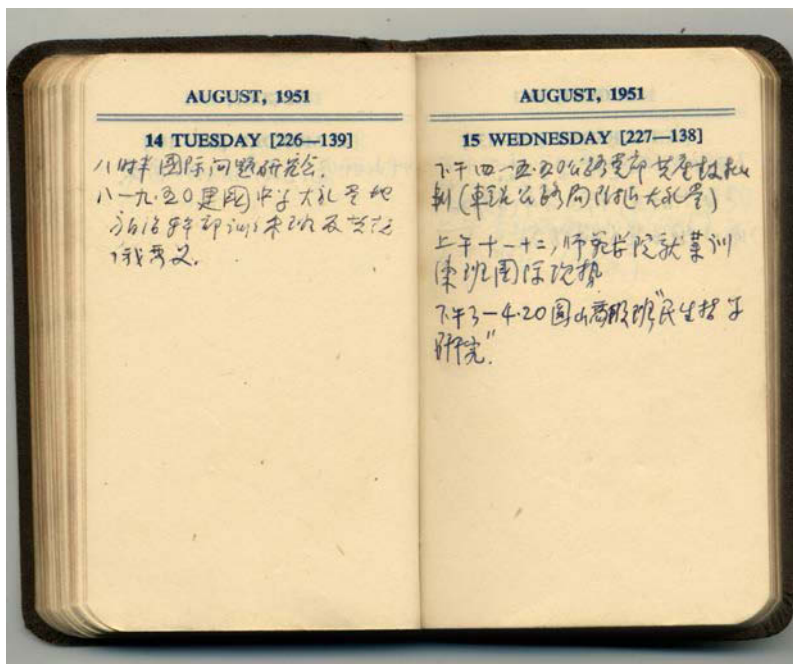 AUGUST, 1951
14 TUESDAY [226—139]
八时半国际问题研究会.
八—九.五○建国中学大礼堂地
方自治幹部训练班反共抗
俄要义.
AUGUST, 1951
15 WEDNESDAY [227—138]
下午四—五.五○公路党部共產
(車 公路局附近大礼堂)
上午十—十二,师范学院就業训
练班国际
下午3—4.20圆山 班"民生哲学
研究".